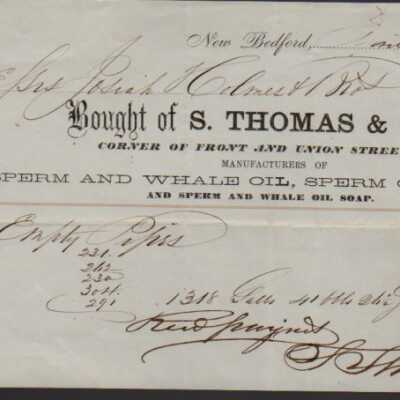 New Bedford,
Josiah Holmes & Bro
Bought of S. THOMAS &
CORNER OF FRONT AND UNION STREE
MANUFACTURERS OF
SPERM AND WHALE OIL, SPERM
AND SPERM AND WHALE OIL SOAP.
Empty Pipes
231.
262
230
304.
291
1318 Galls
Recd payment